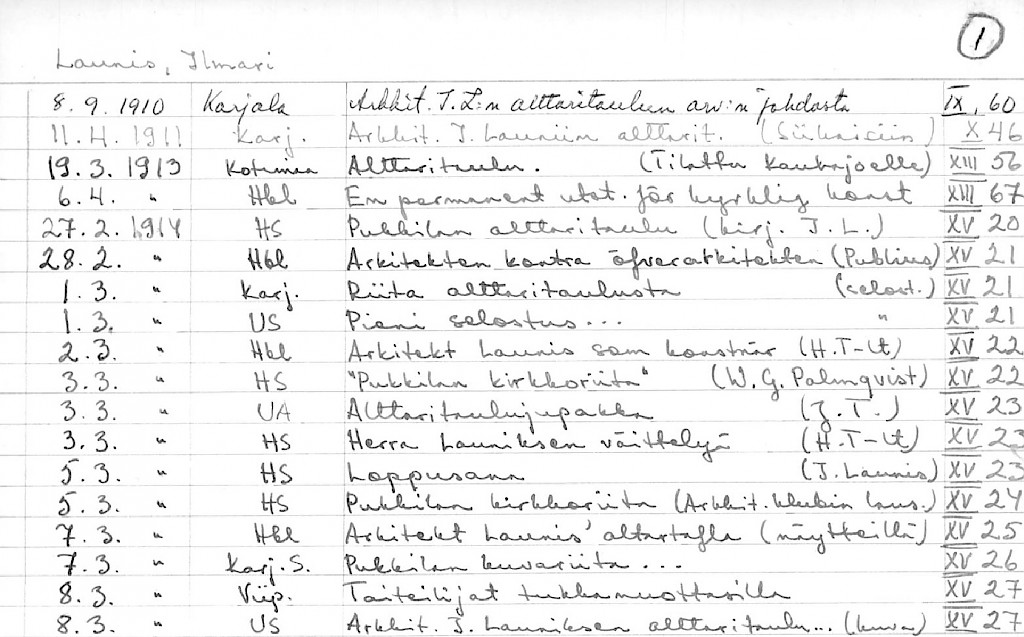 1
Launis, Ilmari
8. 9. 1910 Karjala Arkkit. I. L:n alttaritaulun arv:n johdosta IX, 60
11. 4. 1911 Karj. Arkkit. I. Launiin alttarit. (Siikaisiin) X 46
19. 3. 1913 Kotimaa Alttaritaulu. (Tilattu Kauhajoelle) XIII 56
6. 4. " Hbl En permanent utst. för kyrklig konst XIII 67
27. 2. 1914 HS Pukkilan alttaritaulu (kirj. I. L.) XV 20
28. 2. " Hbl Arkitekten kontra öfverarkitekten (Publius) XV 21
1. 3. " Karj. Riita alttaritaulusta (selost.) XV 21
1. 3. " US Pieni selostus... " XV 21
2. 3. " Hbl Arkitekt Launis som konstnär (H.T-lt) XV 22
3. 3. " HS "Pukkilan kirkkoriita" (W. G. Palmqvist) XV 22
3. 3. " UA Alttaritaulujupakka (J. T.) XV 23
3. 3. " HS Herra Launiksen väittelyä (H.T-lt) XV 23
5. 3. " HS Loppusana (I. Launis) XV 23
5. 3. " HS Pukkilan kirkkoriita (Arkkit. klubin laus.) XV 24
7. 3. " Hbl Arkitekt Launis' altartafla (näytteillä) XV 25
7. 3. " Karj. S. Pukkilan kuvariita ... XV 26
8. 3. " Viip. Taiteilijat tukkanuottasilla XV 27
8. 3. " US Arkkit. I. Launiksen alttaritaulu... (kuva) XV 27